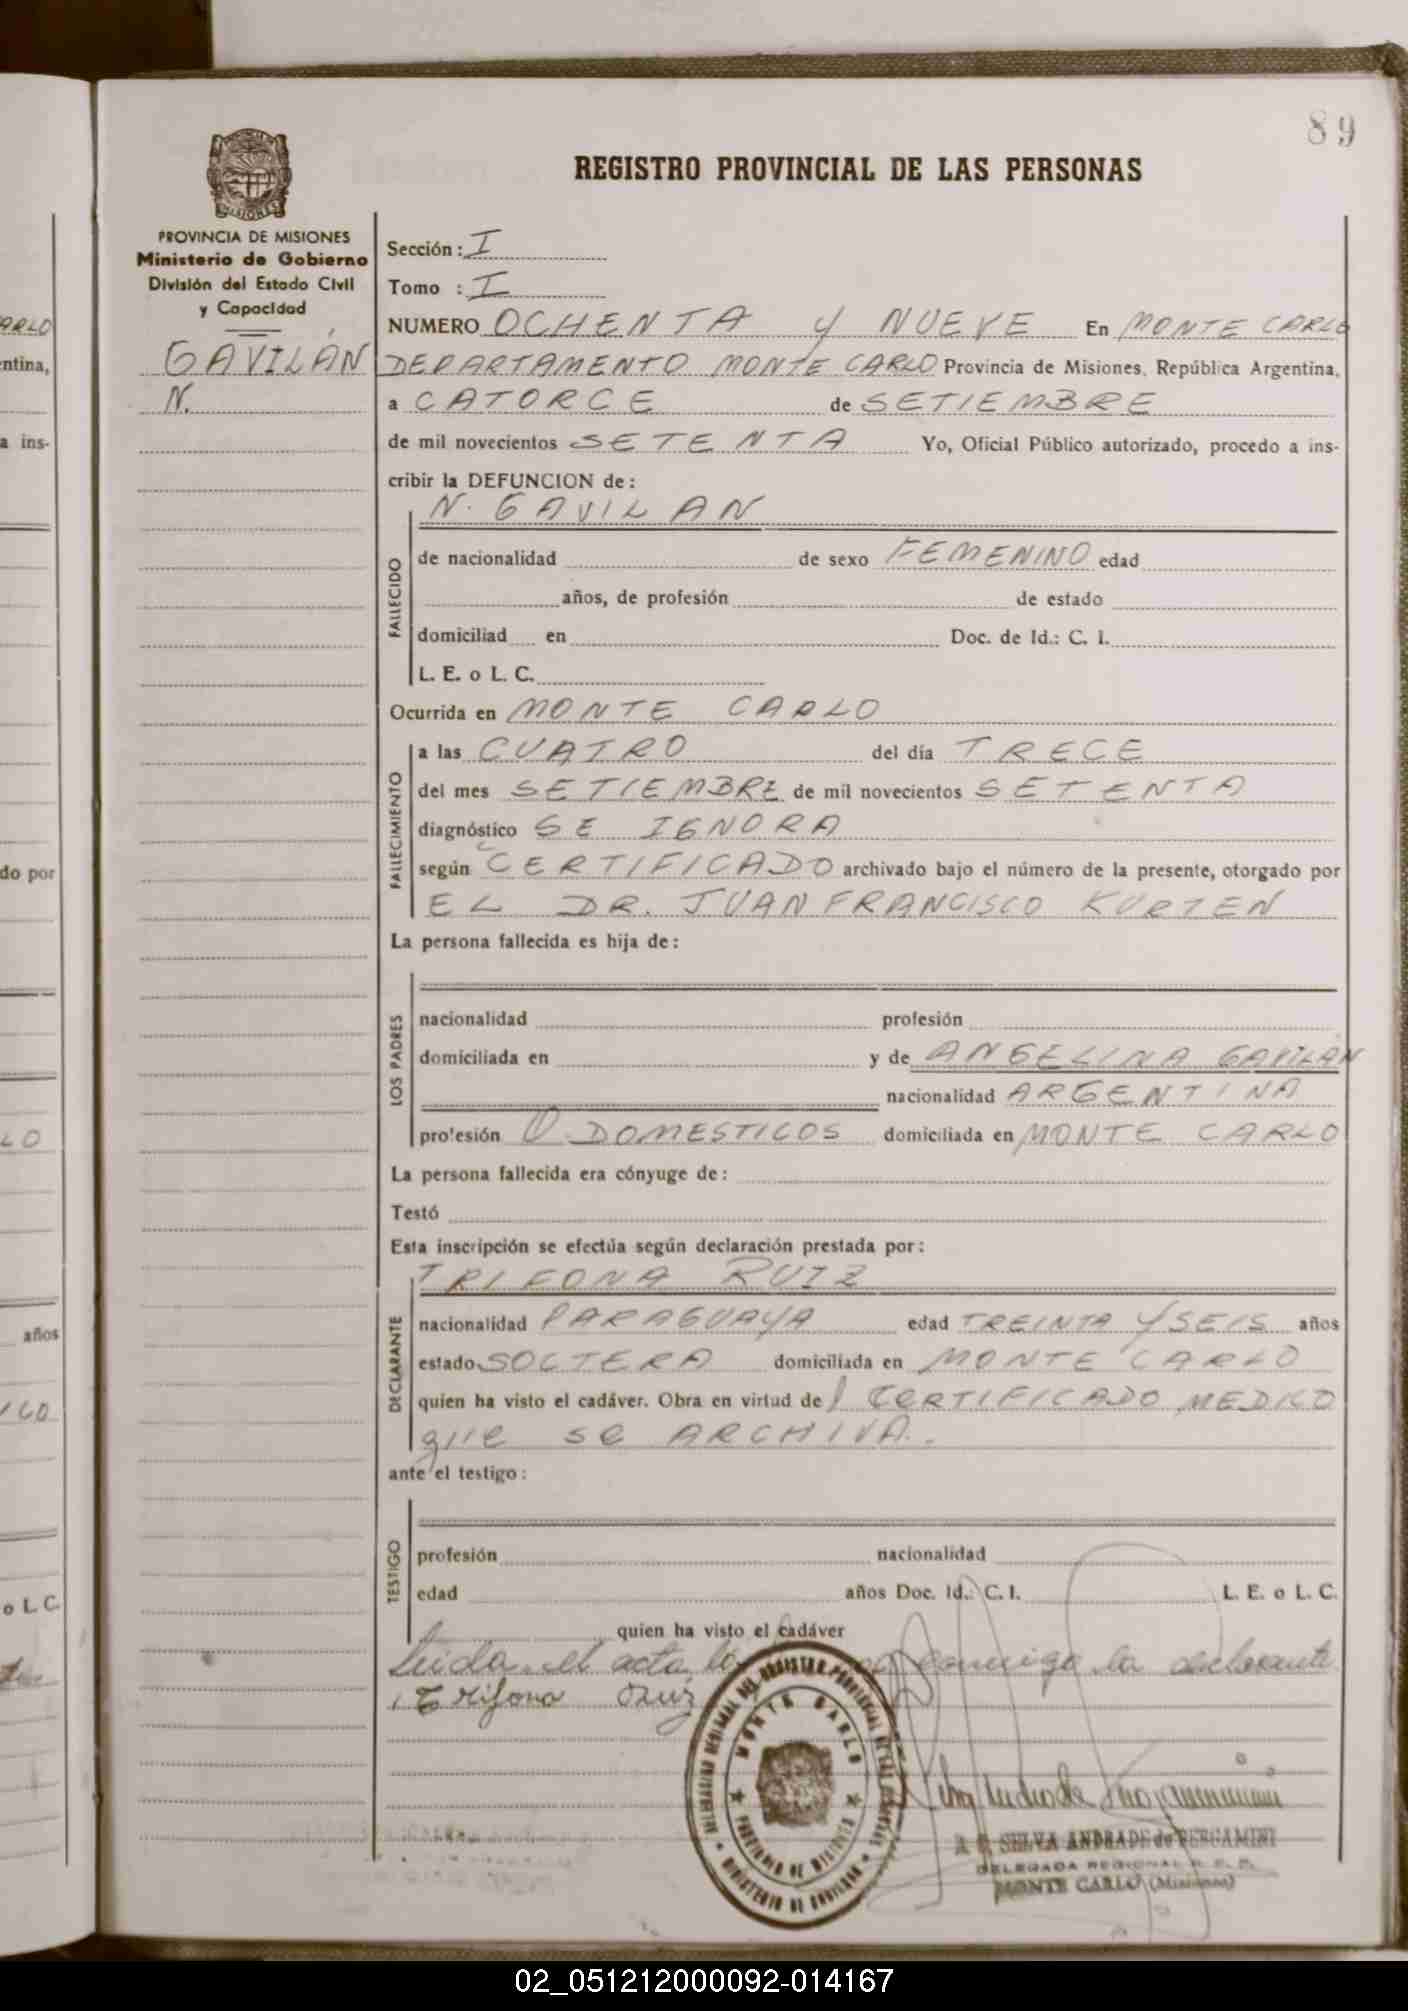 89
REGISTRO PROVINCIAL DE LAS PERSONAS
PROVINCIA DE MISIONES
Ministerio de Gobierno
División del Estado Civil
y Capacidad
GAVILÁN
N.
Sección: I
Tomo : I
NUMERO OCHENTA Y NUEVE En MONTE CARLO
DEPARTAMENTO MONTE CARLO Provincia de Misiones, República Argentina,
a CATORCE de SETIEMBRE
de mil novecientos SETENTA Yo, Oficial Público autorizado, procedo a ins-
cribir la DEFUNCION de:
N. GAVILAN
FALLECIDO
de nacionalidad de sexo FEMENINO edad
años, de profesión de estado
domiciliad en Doc. de Id.: C. I.
L. E. o L. C.
Ocurrida en MONTE CARLO
FALLECIMIENTO
a las CUATRO del día TRECE
del mes SETIEMBRE de mil novecientos SETENTA
diagnóstico SE IGNORA
según CERTIFICADO archivado bajo el número de la presente, otorgado por
EL DR. JUAN FRANCISCO KURTEN
La persona fallecida es hija de:
LOS PADRES
nacionalidad profesión
domiciliada en y de ANGELINA GAVILAN
nacionalidad ARGENTINA
profesión Q. DOMESTICOS domiciliada en MONTE CARLO
La persona fallecida era cónyuge de:
Testó
Esta inscripción se efectúa según declaración prestada por:
TRIFONA RUIZ
DECLARANTE
nacionalidad PARAGUAYA edad TREINTA Y SEIS años
estado SOLTERA domiciliada en MONTE CARLO
quien ha visto el cadáver. Obra en virtud de CERTIFICADO MEDICO
que se ARCHIVA.
ante el testigo:
TESTIGO
profesión nacionalidad
edad años Doc. Id.: C. I. L. E. o L. C.
quien ha visto el cadáver
Leida el acta la conmigo la declarante
Trifona Ruiz
MONTE CARLO
PROVINCIA DE MISIONES
MINISTERIO DE GOBIERNO
SELVA ANDRADE de BERGAMINI
DELEGADA REGIONAL R. P. P.
MONTE CARLO (Misiones)
ARLO
ntina,
a ins-
do por
LO
años
o L. C.
02_051212000092-014167